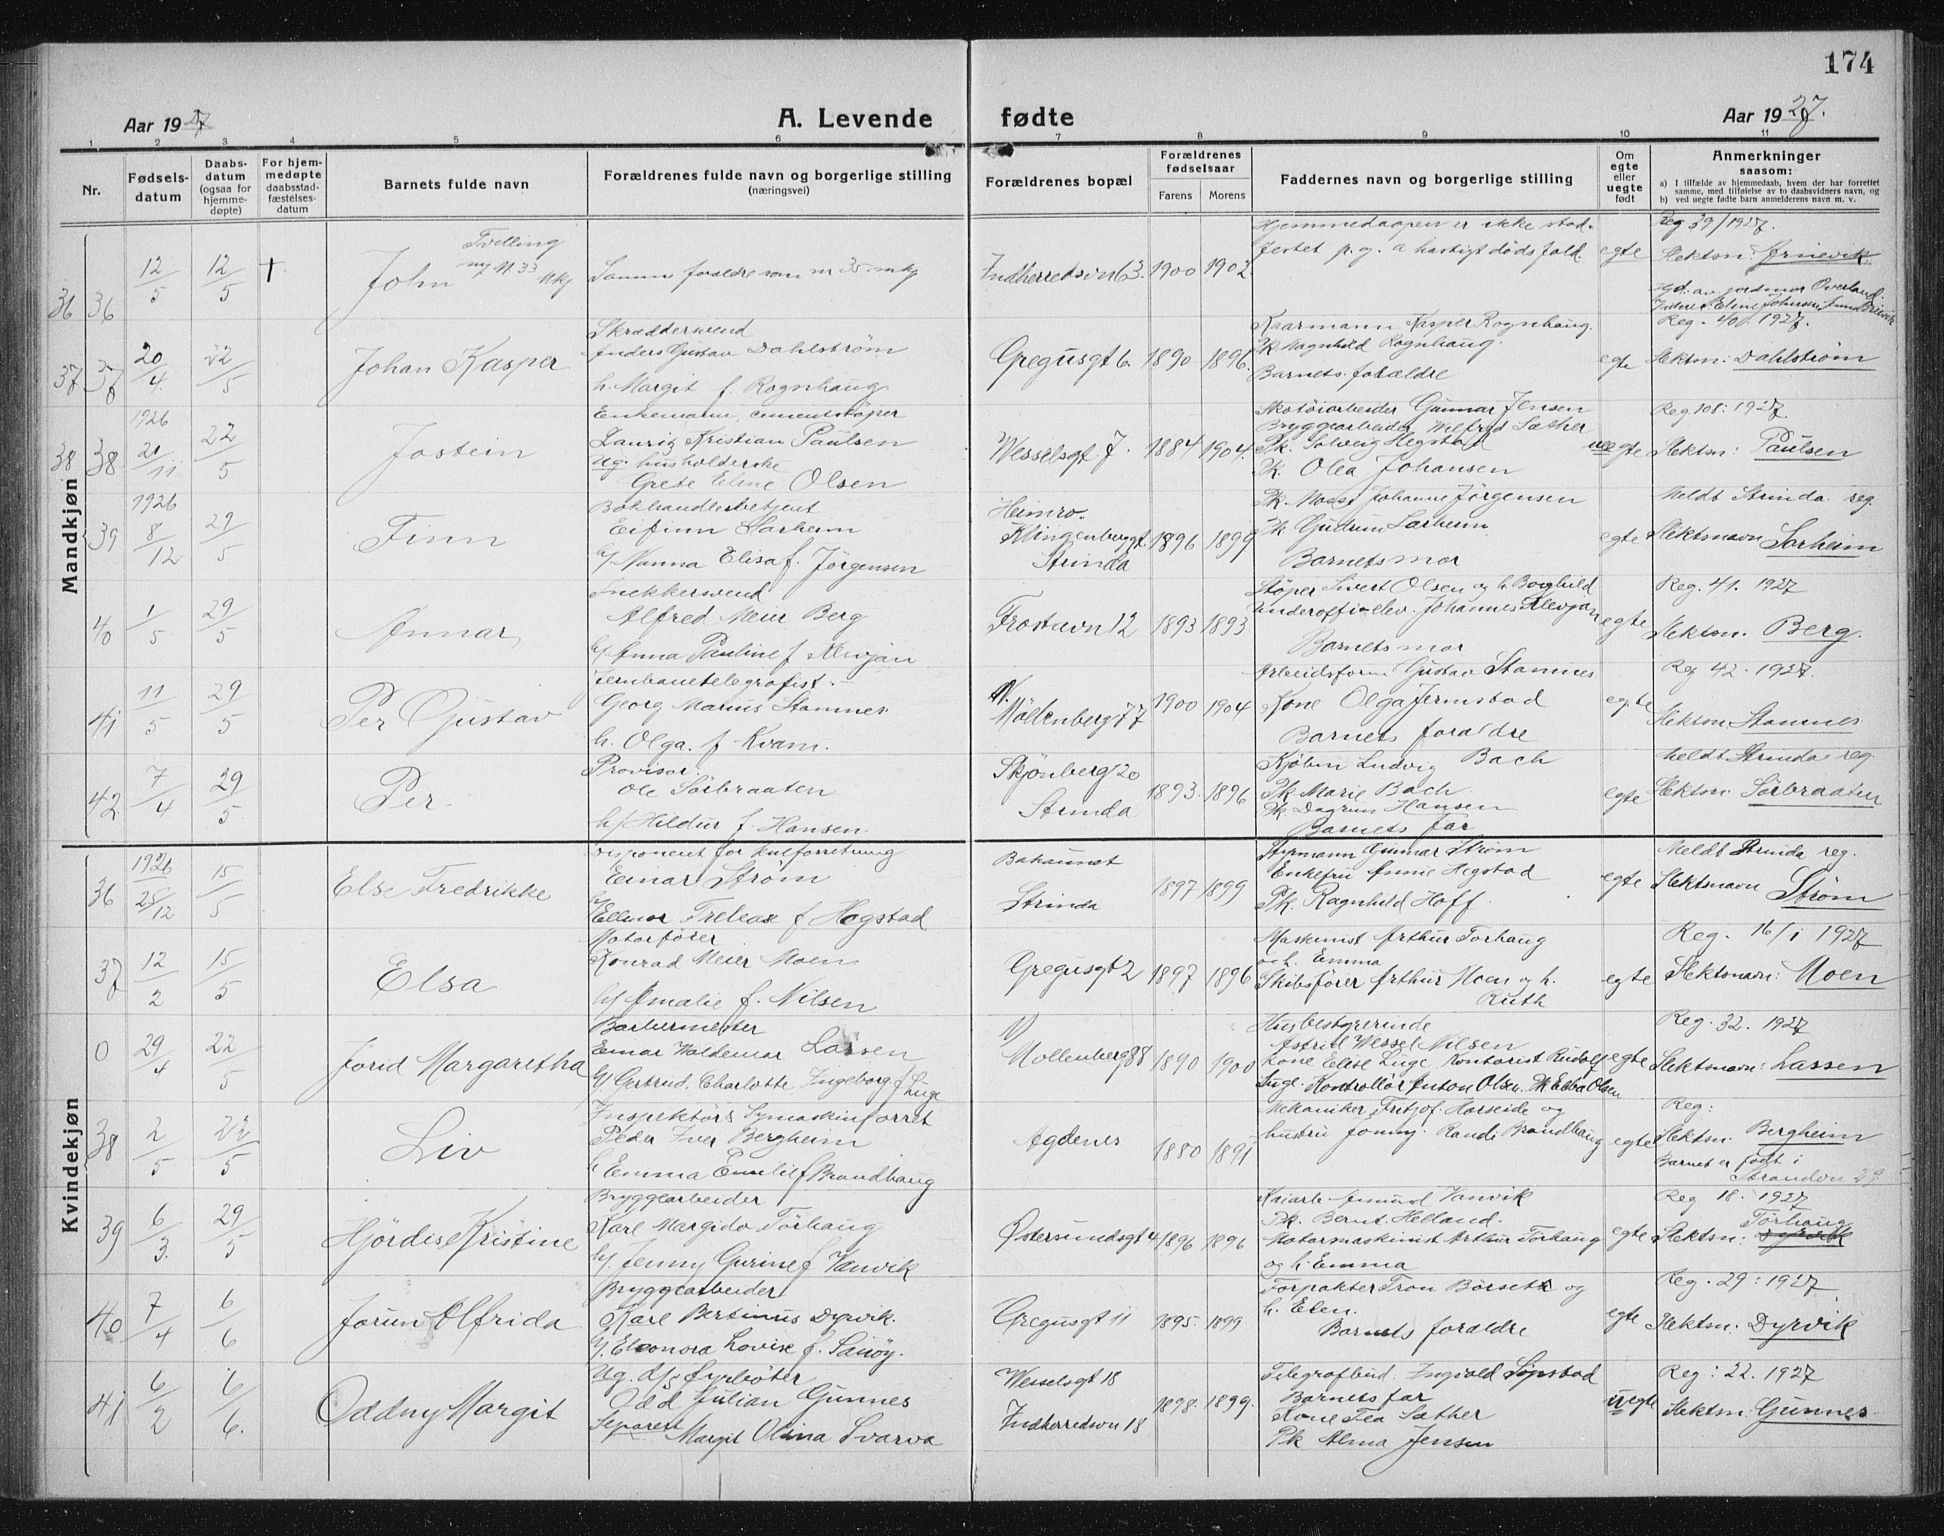 174
Aar 1927
A. Levende fødte
Aar 1927.
1 2 3 4 5 6 7 8 9 10 11
Nr.
Fødsels-
datum
Daabs-
datum
(ogsaa for
hjemme-
døpte)
For hjem-
medøpte
daabsstad-
fæstelses-
datum
Barnets fulde navn
Forældrenes fulde navn og borgerlige stilling
(næringsvei)
Forældrenes bopæl
Forældrenes
fødselsaar
Farens Morens
Faddernes navn og borgerlige stilling
Om
egte
eller
uegte
født
Anmerkninger
saasom:
a) I tilfælde av hjemmedaab, hvem der har forrettet
samme, med tilføielse av to daabsvidners navn, og
b) ved uegte fødte barn anmelderens navn m. v.
Mandkjøn
36 36 12/5 12/5 †
Tvilling
John
Samme foraldre som nr 35 mkj
Indherredsvn 63. 1900 1902.
Hjemmedaapen er ikke stad-
festet p.g. a hastigt dødsfald
egte
Reg 39/1927.
Slektsn: Arnevik
37 37 20/4 22/5
Johan Kasper
Skrædderswend
Anders Gustav Dahlstrøm
h. Margit f. Rognhaug
Gregusgt 6 1890 1896.
Kaarmann Kasper Rognhaug.
Pk. Magnhild Rognhaug.
Barnets foraldre
egte
Reg. 40. 1927.
Slektsn: Dahlstrøm
38 38 1926 20/11 22/5
Jostein
Enkemann, cementstøper
Lauritz Kristian Paulsen
Ug. husholderske
Grete Eline Olsen
Wesselsgt. 7. 1884 1904.
Skotøiarbeider Gunnar Jensen
Bryggearbeider Wilfred Sæther
Pk. Solveig Hegstad
Pk. Olea Johansen
uegte
Reg 108: 1927.
Slektsn: Paulsen
39 1926 8/12 29/5
Finn
Bokhandlerbetjent
Eifinn Sarheim
h/ Nanna Elisa f. Jörgensen
Heimro.
Klingenberggt
Strinda
1896 1899
Pk. Moss Johanne Jörgensen
Pk Gudrun Sarheim
Barnets mor
egte
Meldt Strinda reg.
Slektsnavn Sarheim
40 1/5 29/5
Annar
Snekkerswend
Alfred Meier Berg
h/ Anna Pauline f Klevjan
Frostavn 12 1893 1893
Støper Sivert Olsen og h. Borghild
Underoffi-elev. Johannes Klevjan
Barnets mor
egte
Reg. 41. 1927
Slektsn. Berg.
41 11/5 29/5
Per Gustav
Jernbanetelegrafist.
Georg Marius Stamnes
h. Olga. f Kvam.
N.
Möllenberg 77 1900 1904
Arbeidsform Gustav Stamnes
Kone Olga Jermstad
Barnets foraldre
egte
Reg 42. 1927.
Slektsn Stamnes
42 7/4 29/5
Per.
Provisor.
Ole Sörbraaten
h/ Hildur f. Hansen.
Skjönberg 20
Strinda
1893. 1896
Kjøbm Ludvig Bach
Pk Marie Bach
Pk Dagrun Hansen
Barnets far
egte
Meldt Strinda reg.
Slektsn: Sörbraaten
Kvindekjøn
36 1926 25/12 15/5
Else Fredrikke
Disponent for kulforretning
Einar Strøm
h/
Ellinor Trelease f Hegstad
Bakaunet
Strinda
1897 1899
Styrmann Gunnar Strøm
Enkefru Annie Hegstad
Pk Ragnhild Hoff.
egte
Meldt Strinda reg.
Slektsnavn Strøm
37 12/2 15/5
Elsa
Motorfører
Konrad Meier Moen
h/ Amalie f. Nilsen
Gregusgt 2 1897 1896
Maskinist Arthur Torhaug
og h. Emma
Skibsfører Arthur Moen og h.
Ruth
egte
Reg. 16/1 1927
Slektsnavn: Moen
0 29/4 22/5
Jorid Margaretha
Barbermester
Einar Valdemar Lassen
h/ Gertrud. Charlotte Ingeborg f Luge
N
Mollenberg 88 1890 1900
Husbestyrerinde
Astrid Wessel Nilsen
Kone Elise Luge Kontorist Rudolf
Luge. Kontrollör Anton Olsen. Pk Ebba Olsen
egte
Reg. 32. 1927
Slektsnavn: Lassen
38 2/5 22/5
Liv
Inspektörs Symaskinforret
Peder Iver Bergheim
h Emma Emilie f Brandhaug
Agdenes 1880 1891
Mekaniker Fritjof Harseide og
hustru Jonny. Randi Brandhaug
egte
Reg:
Slektsn: Bergheim
Barnet er født i
Strandvn 29
39 6/3. 29/5
Hjördis Kristine
Bryggearbeider
Karl Margido Törhaug
h/. Jenny Gurine f Vanvik
Østersundsgt 4 1896 1896
Kaiarb. Amund Vanvik
Pk. Bernt. Helland.
Motormaskinist Arthur Torhaug
og h. Emma
egte
Reg 18. 1927
Slektsn: Törhaug
40 7/4 6/6
Jorun Alfrida
Bryggearbeider
Karl Bertinus Dyrvik.
h/. Eleonora Lovise f. Sanöy.
Gregusgt 11 1895. 1899
Forpakter Tron Börseth og
h. Elen.
Barnets foraldre
egte
Reg. 29: 1927
Slektsn: Dyrvik
41 6/2 6/6.
Oddny Margit
Ug. Fyrbøter
Odd Julian Gunnes
Separert Margit Olina Svarva
Wesselsgt 18
Indherredsvn 18
1898. 1899.
Telegrafbud. Ingvald Sjøstad
Barnets far
Kone Tea Sæther
Pk Alma Jensen
uegte
Reg: 22. 1927
Slektsn: Gunnes